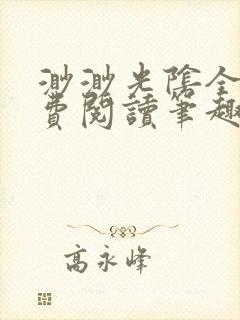 渺渺光陰全
費閱讀筆趣
高永峰